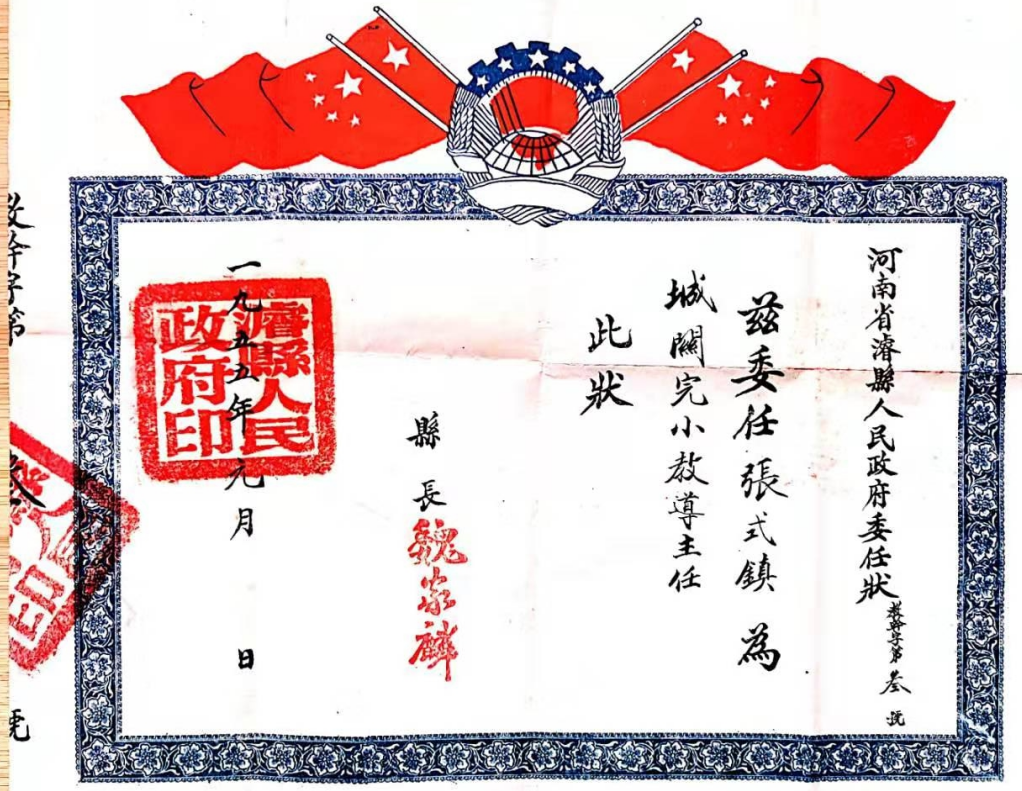 河南省濬縣人民政府委任狀
教幹字第叁號
茲委任張式鎮為
城關完小教導主任
此狀
縣長魏家麟
一九五五年元月 日
濬縣人民
政府印
教幹字第
號